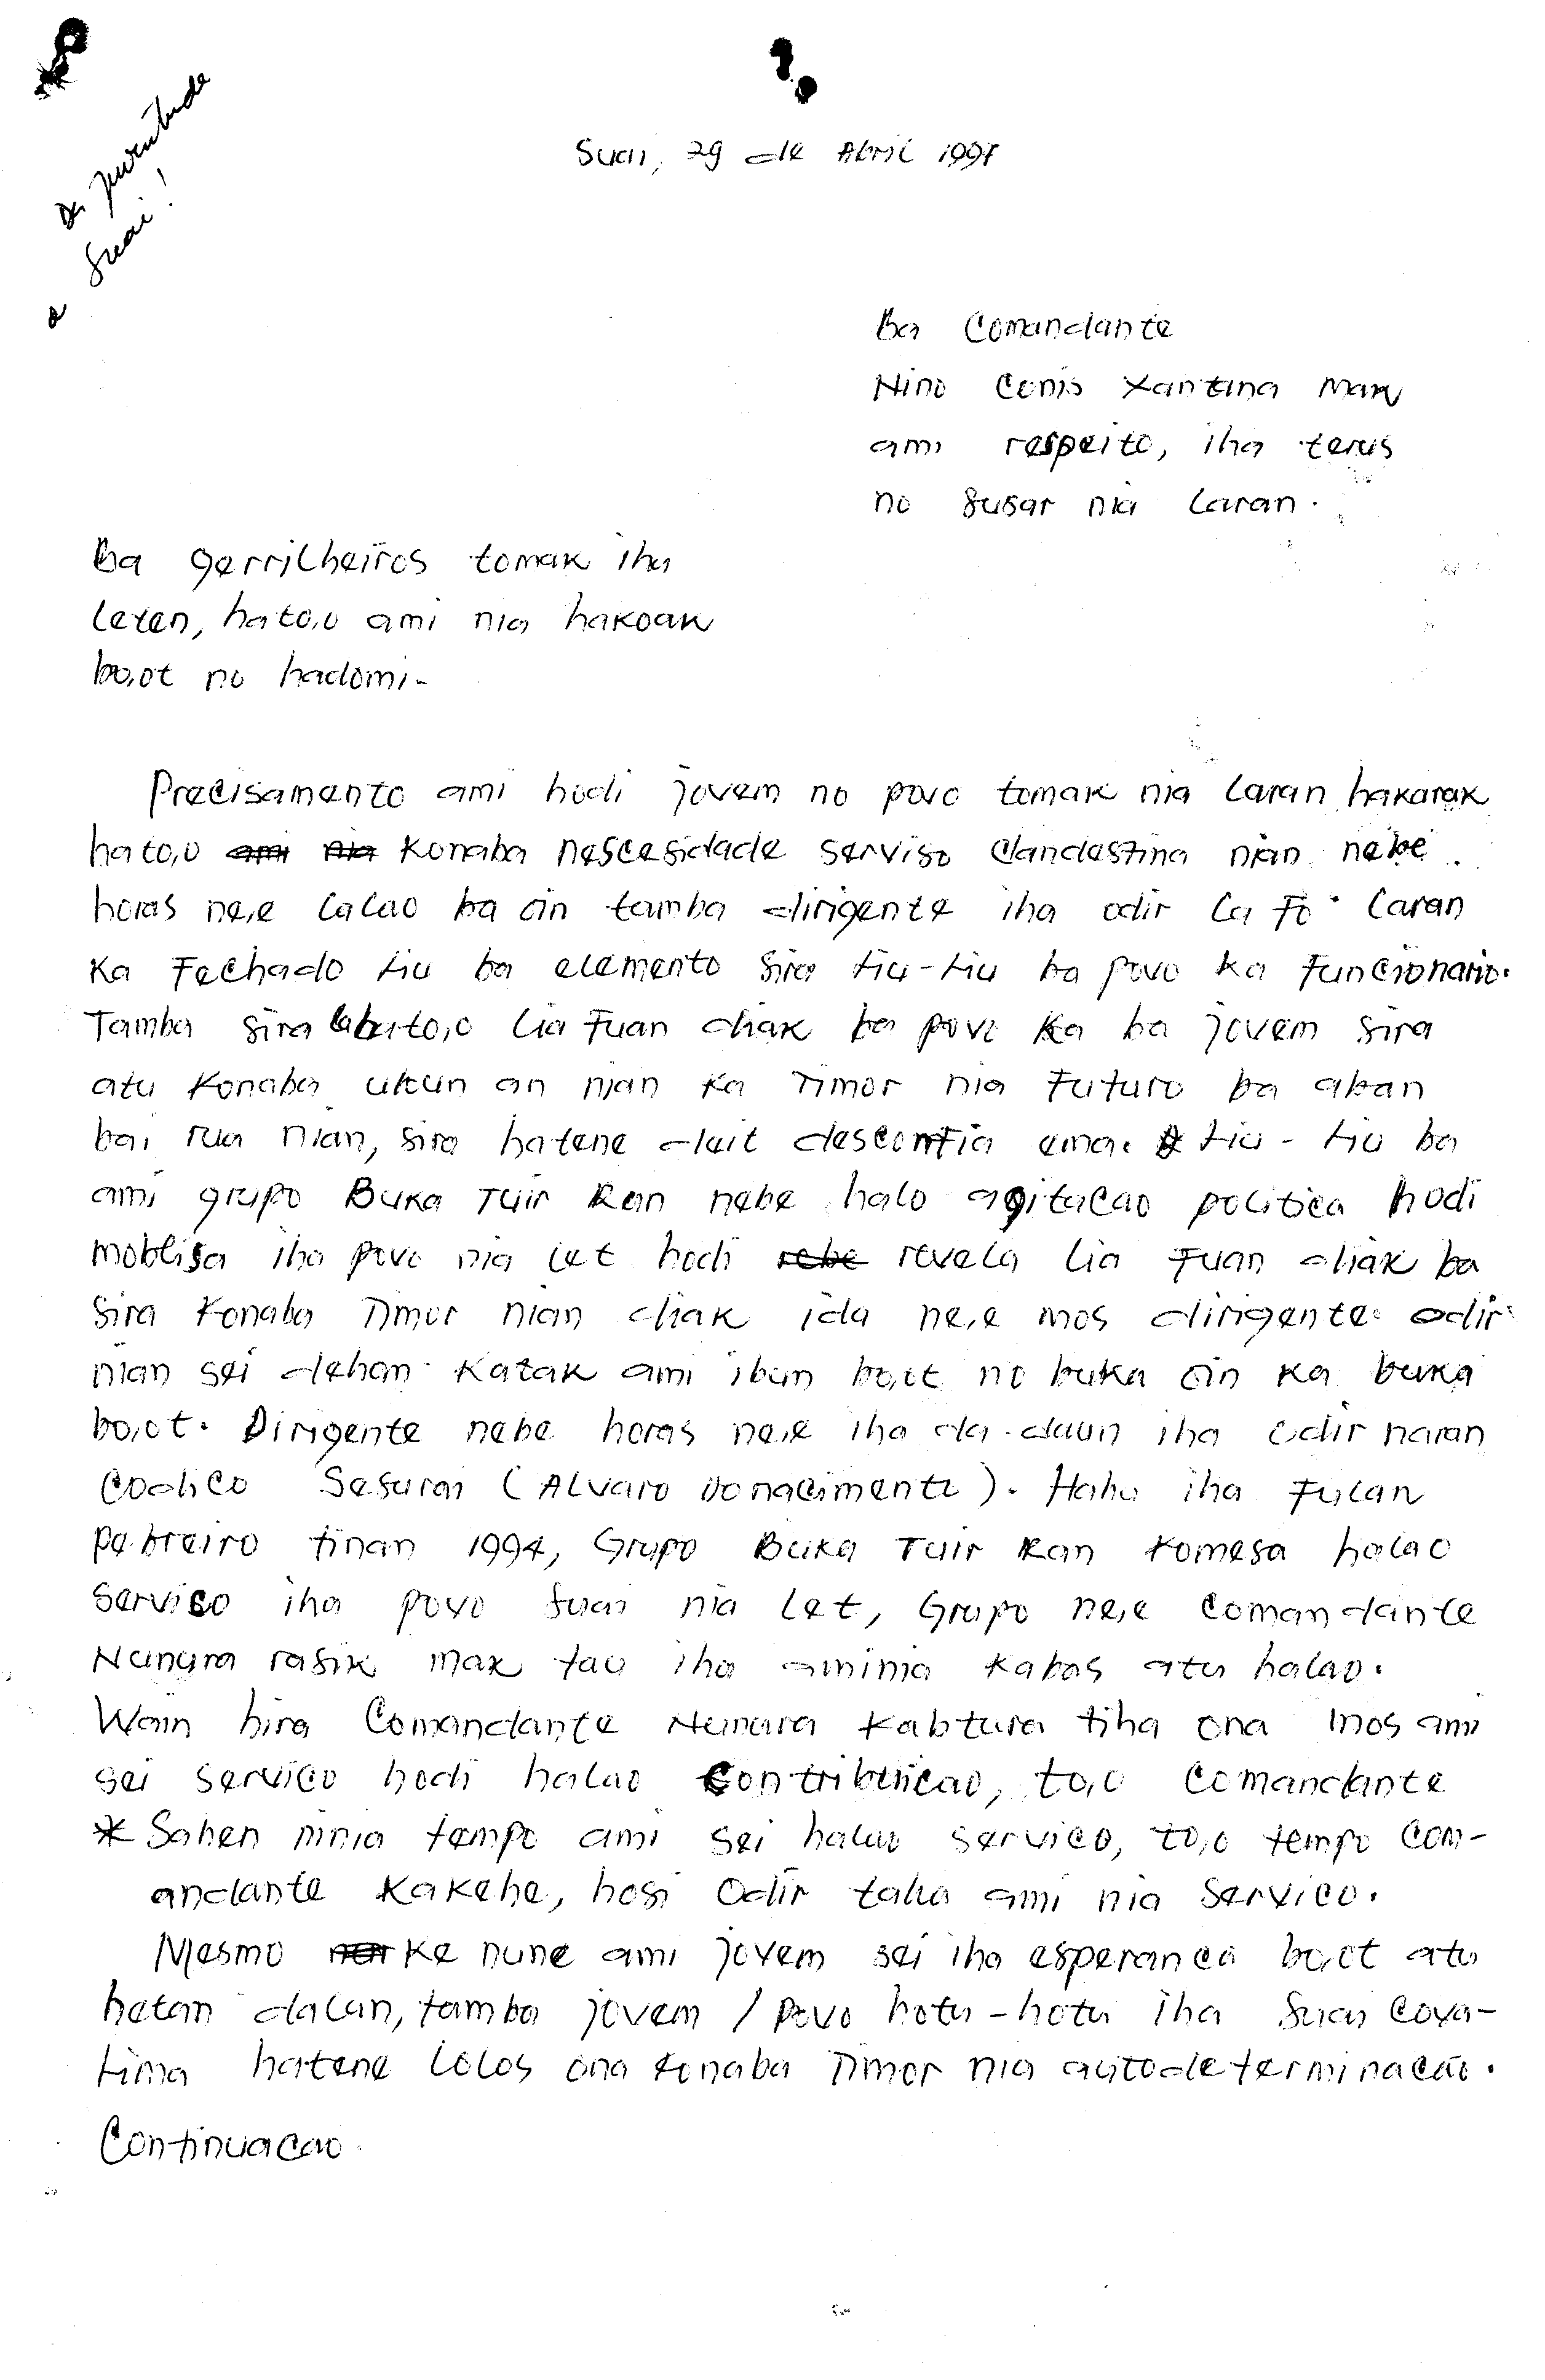 da juventude
a Suai!
Suai, 29 de Abril 1997
Ba Comandante
Nino Conis Xantana Mak
ami respeito, iha terus
no susar nia laran.
Ba gerrilheiros tomak iha
leten, hato,o ami nia hakoak
bo,ot no hadomi.
Precisamento ami hodi jovem no povo tomak nia laran hakarak
hato,o konaba nescesidade serviso clandestina nian nebe
horas ne,e lalao ba oin tamba dirigente iha odir la fo laran
ka fechado liu ba elemento sira liu-liu ba povo ka funcionario.
Tamba sira labuto,o lia fuan diak ba povo ka ba jovem sira
atu konaba ukun an nian ka Timor nia futuro ba aban
bai rua nian, sira hatene deit desconfia ema. liu - liu ba
ami grupo Buka Tuir Ran nebe halo agitacao politica hodi
moblisa iha povo nia let hodi revela lia fuan diak ba
sira konaba Timor nian diak ida ne,e mos dirigente odir
nian sei dehan katak ami ibun bo,ot no buka oin ka buka
bo,ot. Dirigente nebe horas ne,e iha da-daun iha odir naran
codico Sesurai (Alvaro Donacimento). Hahu iha fulan
pebreiro tinan 1994, Grupo Buka Tuir Ran komesa halao
servico iha povo suai nia let, Grupo ne,e Comandante
Nunura rasik mak tau iha aminia kabas atu halao.
Wain hira Comandante Nunura kabtura tiha ona mos ami
sei servico hodi halao contribuicao, to,o Comandante
* Sahen ninia tempo ami sei halao servico, to,o tempo com-
andante Kakehe, hosi Odir taka ami nia servico.
Mesmo ke nune ami jovem sei iha esperanca bo,ot atu
hetan dalan, tamba jovem / povo hotu-hotu iha suai cova-
lima hatene lolos ona konaba Timor nia autodeterminacão.
Continuacao.